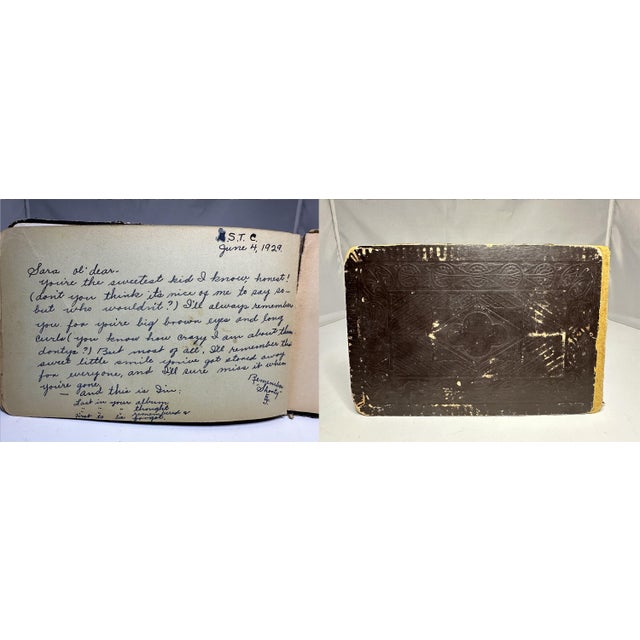 S.T.C.
June 4, 1929.
Sara ol' dear.
You're the sweetest kid I know, honest!
(don't you think it's nice of me to say so-
but who wouldn't?) I'll always remember
you for you're big brown eyes and long
curls (you know how crazy I am about them
dontya?) But most of all, I'll remember the
sweet little smile you've got stored away
for everyone, and I'll sure miss it when
you're gone.
— and this is Din:
Last in your album
" " " thought
Last to be remembered &
to be forgot.
Remember
Shorty